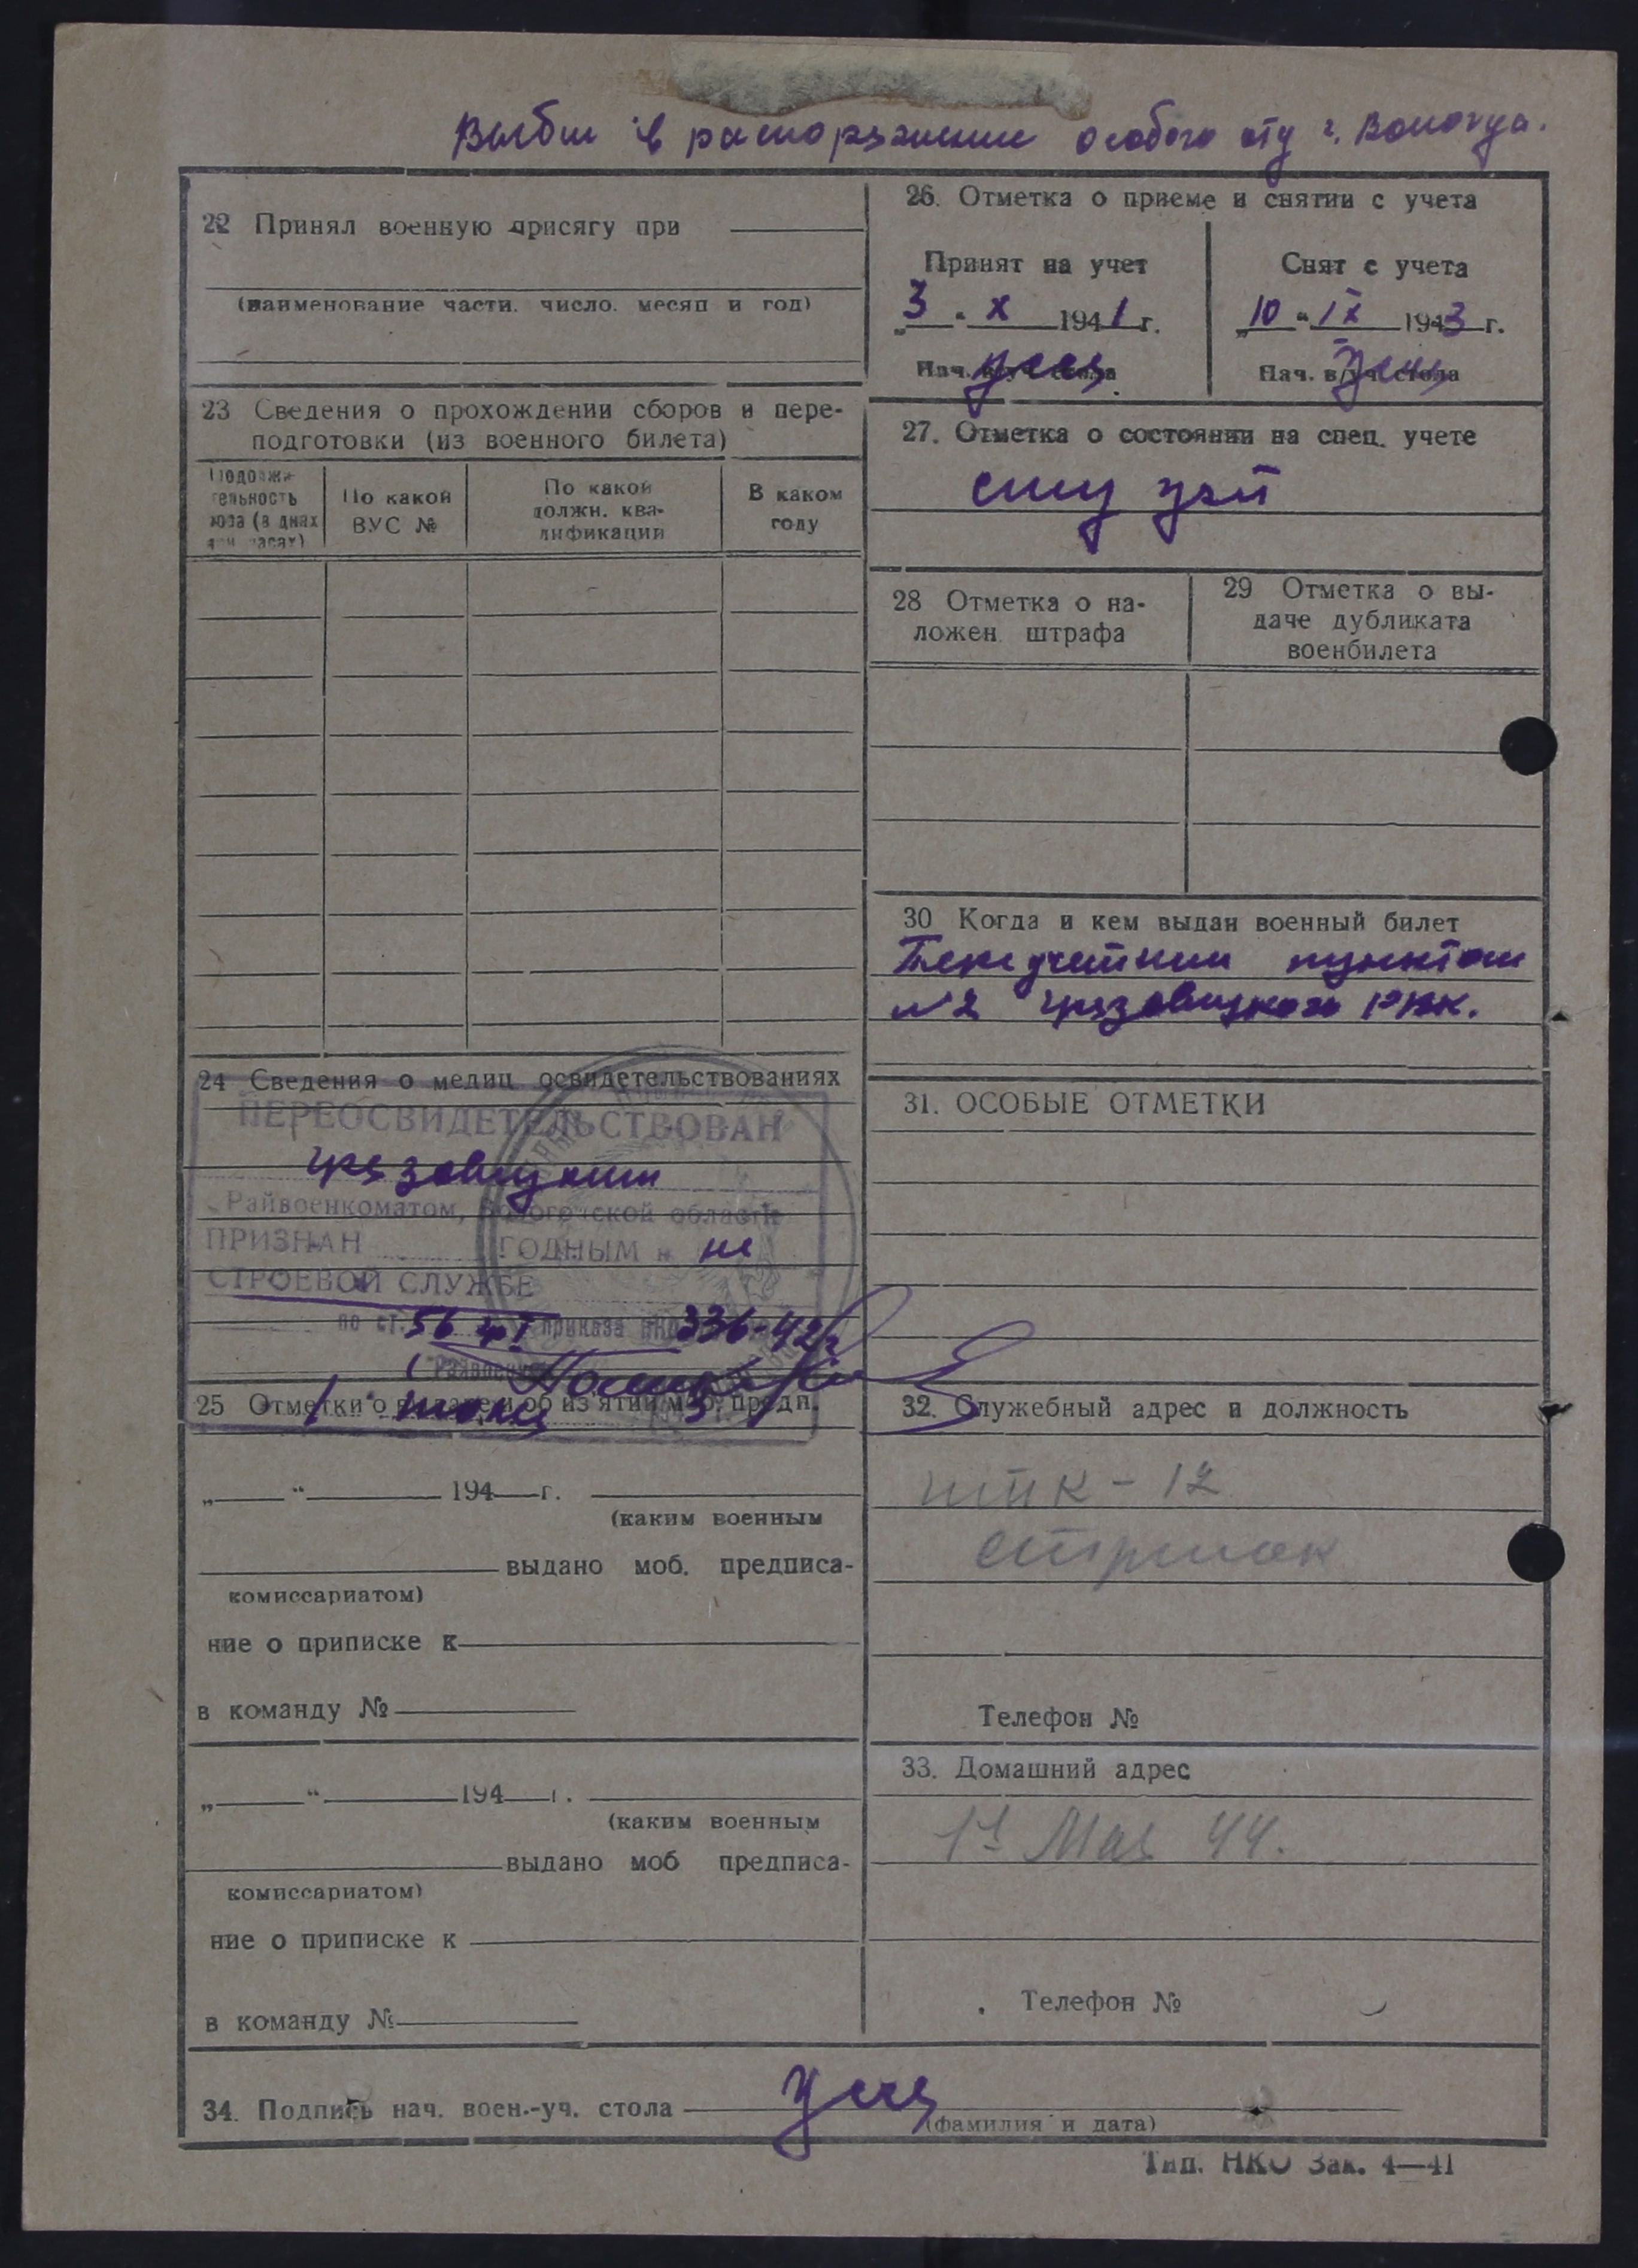 Выбыл в распоряжение особого отд г. Вологда.
22 Принял военную присягу при
(наименование части, число, месяц и год)
23 Сведения о прохождении сборов и пере-
подготовки (из военного билета)
Продолжи-
тельность
сбора (в днях
или часах)
По какой
ВУС №
По какой
должн. ква-
лификации
В каком
году
24 Сведения о медиц. освидетельствованиях
ПЕРЕОСВИДЕТЕЛЬСТВОВАН
Грязовецким
Райвоенкоматом, Вологодской области
ПРИЗНАН ГОДНЫМ к не
СТРОЕВОЙ СЛУЖБЕ
по ст. 56 гр I приказа НКО 336-42г
Райвоенком
25 Отметки о выдаче и об из'ятии моб. предп.
„ “ 194 г.
(каким военным
выдано моб. предписа-
комиссариатом)
ние о приписке к
в команду №
„ “ 194 г.
(каким военным
выдано моб предписа-
комиссариатом)
ние о приписке к
в команду №
26. Отметка о приеме и снятии с учета
Принят на учет
„3“ X 1941 г.
Нач. в/уч. стола
Снят с учета
„10“ IX 1943 г.
Нач. в/уч. стола
27. Отметка о состоянии на спец. учете
28 Отметка о на-
ложен. штрафа
29 Отметка о вы-
даче дубликата
военбилета
30 Когда и кем выдан военный билет
пунктом
№2 Грязовецкого РВК.
31. ОСОБЫЕ ОТМЕТКИ
32. Служебный адрес и должность
ИТК - 12
стрелок
Телефон №
33. Домашний адрес
1е Мая 44.
Телефон №
34. Подпись нач. воен.-уч. стола
(фамилия и дата)
Тип. НКО Зак. 4—41